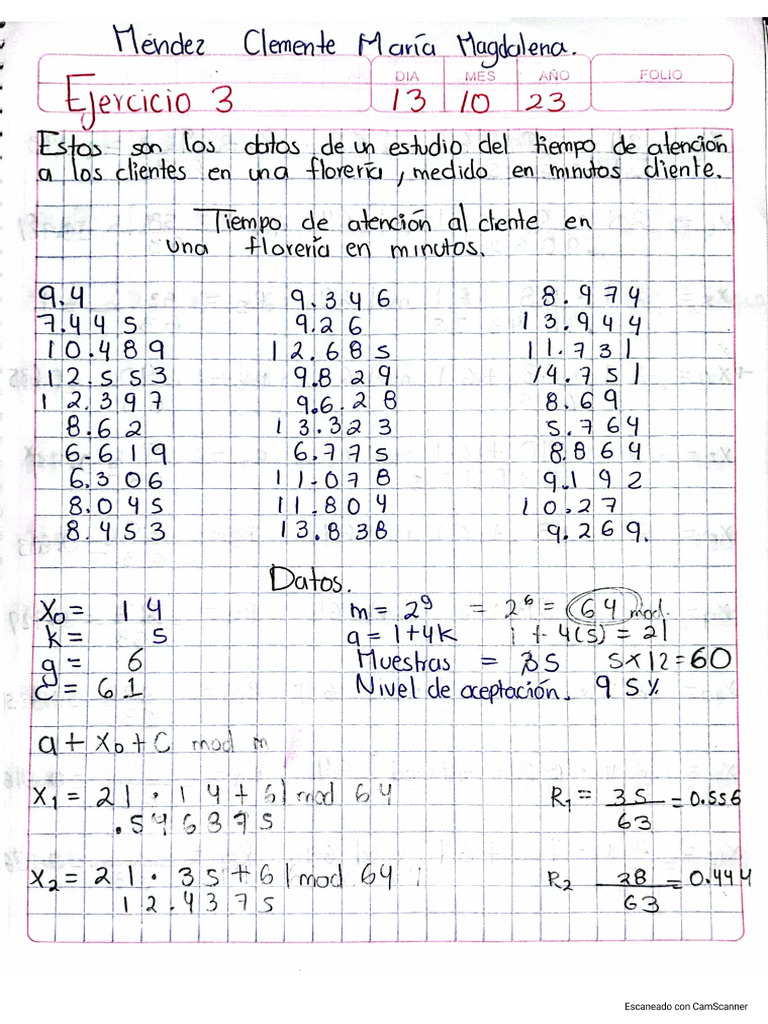 Méndez Clemente María Magdalena.
DIA MES AÑO FOLIO
Ejercicio 3 13 10 23
Estos son los datos de un estudio del tiempo de atención
a los clientes en una florería, medido en minutos cliente.
Tiempo de atención al cliente en
una florería en minutos.
9.4 9.346 8.974
7.445 9.26 13.944
10.489 12.685 11.731
12.553 9.829 14.751
12.397 9.6.28 8.69
8.62 13.323 5.764
6.619 6.775 8.864
6.306 11.078 9.192
8.045 11.804 10.27
8.453 13.838 9.269.
Datos.
X₀ = 14 m = 2^g = 2^6 = 64 mod.
k = 5 a = 1+4k 1 + 4(5) = 21
g = 6 Muestras = 35 5x12=60
C = 61 Nivel de aceptación. 95%
a + X₀ + C mod m
X₁ = 21 · 14 + 61 mod 64 R₁ = 35/63 = 0.556
.546875
X₂ = 21 · 35 + 61 mod 64 R₂ 28/63 = 0.444
12.4375
Escaneado con CamScanner